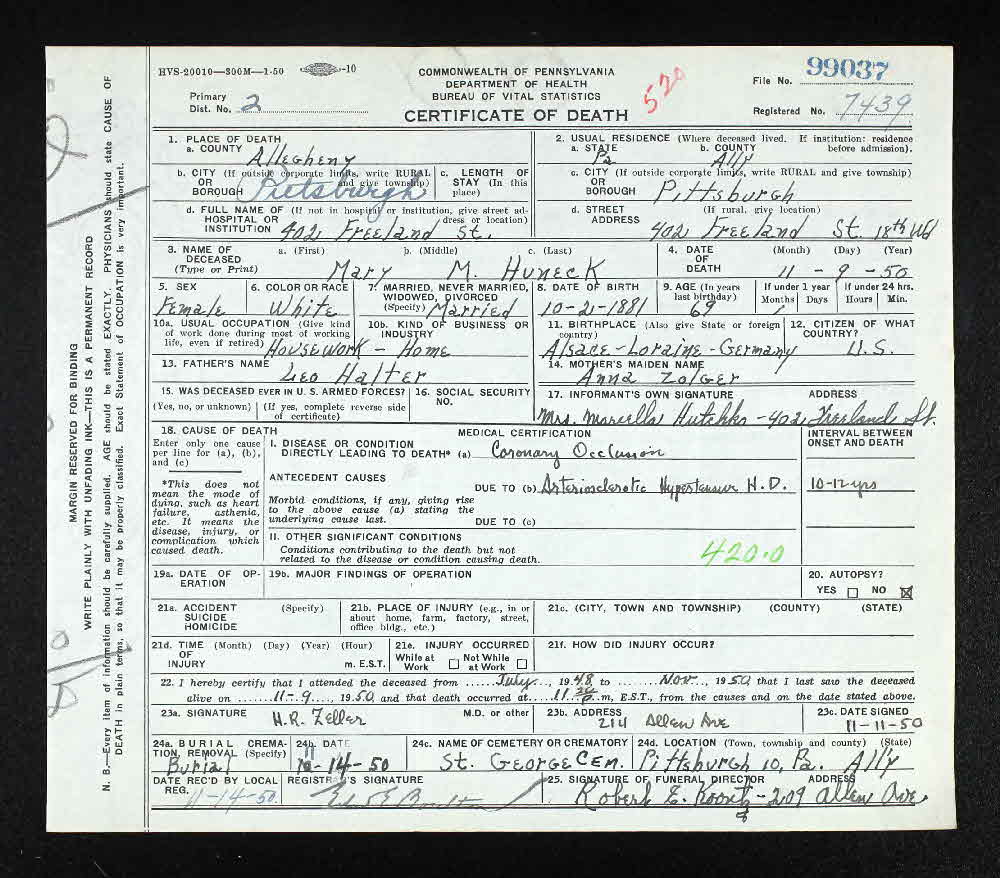 HVS-20010—300M—1-50 -10
COMMONWEALTH OF PENNSYLVANIA
DEPARTMENT OF HEALTH
BUREAU OF VITAL STATISTICS
CERTIFICATE OF DEATH
520
File No. 99037
Primary
Dist. No. 2
Registered No. 7439
1. PLACE OF DEATH
a. COUNTY Allegheny
2. USUAL RESIDENCE (Where deceased lived. If institution: residence before admission).
a. STATE Pa b. COUNTY Ally
b. CITY (If outside corporate limits, write RURAL and give township)
OR
BOROUGH Pittsburgh
c. LENGTH OF STAY (In this place)
c. CITY (If outside corporate limits, write RURAL and give township)
OR
BOROUGH Pittsburgh
d. FULL NAME OF (If not in hospital or institution, give street address or location)
HOSPITAL OR
INSTITUTION 402 Freeland St.
d. STREET (If rural, give location)
ADDRESS 402 Freeland St. 18th Wd
3. NAME OF DECEASED
(Type or Print)
a. (First) b. (Middle) c. (Last)
Mary M. Huneck
4. DATE OF DEATH (Month) (Day) (Year)
11 - 9 - 50
5. SEX
Female
6. COLOR OR RACE
White
7. MARRIED, NEVER MARRIED, WIDOWED, DIVORCED
(Specify) Married
8. DATE OF BIRTH
10-2-1881
9. AGE (In years last birthday)
69
If under 1 year
Months Days
1
If under 24 hrs.
Hours Min.
10a. USUAL OCCUPATION (Give kind of work done during most of working life, even if retired)
Housework - Home
10b. KIND OF BUSINESS OR INDUSTRY
11. BIRTHPLACE (Also give State or foreign country)
Alsace-Loraine-Germany
12. CITIZEN OF WHAT COUNTRY?
U.S.
13. FATHER'S NAME
Leo Halter
14. MOTHER'S MAIDEN NAME
Anna Zolger
15. WAS DECEASED EVER IN U. S. ARMED FORCES?
(Yes, no, or unknown) (If yes, complete reverse side of certificate)
16. SOCIAL SECURITY NO.
17. INFORMANT'S OWN SIGNATURE ADDRESS
Mrs. Marcella - 402 Freeland St.
18. CAUSE OF DEATH
Enter only one cause per line for (a), (b), and (c)
MEDICAL CERTIFICATION
INTERVAL BETWEEN ONSET AND DEATH
I. DISEASE OR CONDITION
DIRECTLY LEADING TO DEATH* (a) Coronary Occlusion
*This does not mean the mode of dying, such as heart failure, asthenia, etc. It means the disease, injury, or complication which caused death.
ANTECEDENT CAUSES
DUE TO (b) Arteriosclerotic Hypertensive H.D. 10-12 yrs
Morbid conditions, if any, giving rise to the above cause (a) stating the underlying cause last.
DUE TO (c)
II. OTHER SIGNIFICANT CONDITIONS
Conditions contributing to the death but not related to the disease or condition causing death.
420.0
19a. DATE OF OPERATION
19b. MAJOR FINDINGS OF OPERATION
20. AUTOPSY?
YES NO X
21a. ACCIDENT (Specify)
SUICIDE
HOMICIDE
21b. PLACE OF INJURY (e.g., in or about home, farm, factory, street, office bldg., etc.)
21c. (CITY, TOWN AND TOWNSHIP) (COUNTY) (STATE)
21d. TIME (Month) (Day) (Year) (Hour)
OF
INJURY m. E.S.T.
21e. INJURY OCCURRED
While at Work Not While at Work
21f. HOW DID INJURY OCCUR?
22. I hereby certify that I attended the deceased from July, 1948 to Nov, 1950, that I last saw the deceased
alive on 11-9, 1950, and that death occurred at 11 p.m, E.S.T., from the causes and on the date stated above.
23a. SIGNATURE M.D. or other
H.R. Zeller
23b. ADDRESS
214 Allen Ave
23c. DATE SIGNED
11-11-50
24a. BURIAL, CREMATION, REMOVAL (Specify)
Burial
24b. DATE
11-14-50
24c. NAME OF CEMETERY OR CREMATORY
St. George Cem.
24d. LOCATION (Town, township and county) (State)
Pittsburgh 10, Pa. Ally
DATE REC'D BY LOCAL REG.
11-14-50
REGISTRAR'S SIGNATURE
25. SIGNATURE OF FUNERAL DIRECTOR ADDRESS
Robert E. Koontz - 209 Allen Ave
MARGIN RESERVED FOR BINDING
WRITE PLAINLY WITH UNFADING INK—THIS IS A PERMANENT RECORD
N. B.—Every item of information should be carefully supplied. AGE should be stated EXACTLY. PHYSICIANS should state CAUSE OF
DEATH in plain terms, so that it may be properly classified. Exact Statement of OCCUPATION is very important.